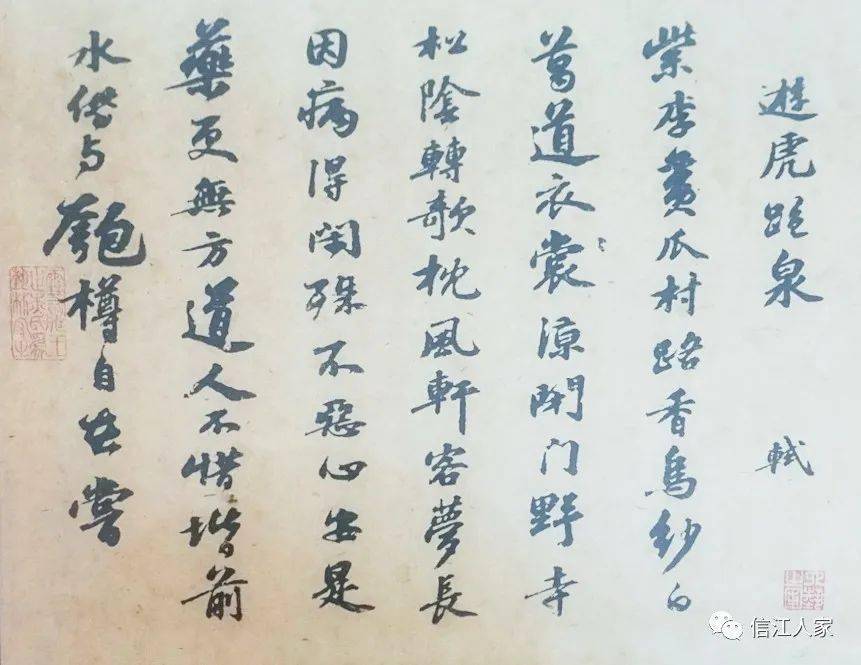 遊虎跑泉 軾
紫李黃瓜村路香烏紗白
葛道衣裳涼閇门野寺
松陰轉欹枕風軒客夢長
因病得閑殊不惡心安是
藥更無方道人不惜堦前
水借与匏樽自在嘗
信江人家